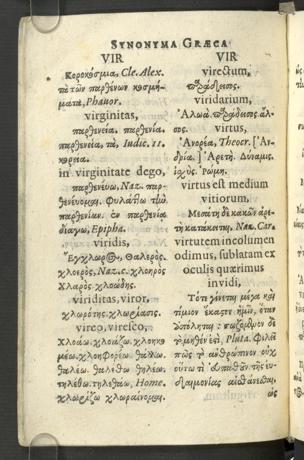 SYNONYMA GRÆCA
VIR
Κοροκόσμια, Cle. Alex.
τὰ τῶν παρθένων κοσμή-
ματα, Phauor.
virginitas,
παρθενεία. παρθενία.
παρθενεία, τὰ, Iudic. 11.
κορεία.
in virginitate dego,
παρθενεύω, Naz. παρ-
θενεύομαι. Φυλάττω τὴν
παρθενίαν. ἐν παρθενίᾳ
διάγω, Epipha.
viridis,
Ἔγχλωρος, Θαλερός.
χλοερός, Naz. c. χλοηρός
Χλαρός χλοώδης.
viriditas, viror,
χλωρότης. χλωρίασις.
vireo, viresco,
Χλοάω. χλοάζω. χλοη-
μέω. χλοηφορέω. θάλλω.
θαλέω. θαλέθω θηλέω.
τηλέθω. τηλεθάω, Home.
χλωρίζω χλωραίνομαι.
VIR
virectum,
παράδεισος.
viridarium,
Ἀλωά. παράδεισος ἄλ-
σος.
virtus,
Ἀνορέα, Theocr. [Ἀν-
δρία.] Ἀρετή. Δύναμις.
ἰσχύς. Ῥώμη.
virtus est medium
vitiorum,
Μέση τῶν κακῶν ἀρε-
τὴ κατάκειται, Naz. Car.
virtutem incolumen
odimus, sublatam ex
oculis quærimus
invidi,
Τότε γίνεται μέγα καὶ
τίμιον ἕκαστον ἡμῖν, ὅταν
ἀπόληται: σωζόμενον δὲ
τὸ μηθέν ἐστι, Pluta. Φιλεῖ
πως τὸ ἀνθρώπινον οὐχ
οὕτω τι ἐπαθὸν τῆς εὐ-
δαιμονίας αἰσθάνεσθαι,
ὡς